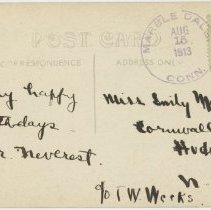 POST CARD
CORRESPONDENCE
ADDRESS ONLY
MARBLE DALE
AUG
16
1913
CONN.
happy
thdays.
Neverest.
Miss Emily M
Cornwall
Huds
N
c/o T. W. Weeks.